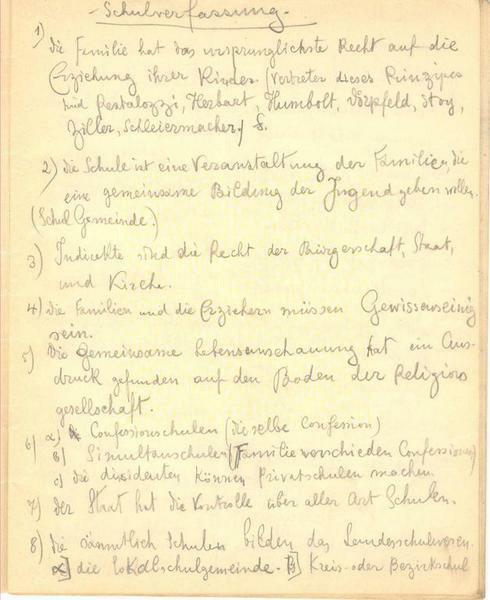 Schulverfassung.
1) die Familie hat das ursprunglichste Recht auf die
Erziehung ihrer Kinder. (Vertreter dieses Prinzipes
sind Pestalozzi, Herbart, Humbolt, Dörpfeld, Stoy,
Ziller, Schleiermacher)
2) die Schule ist eine Veranstaltung der Familien, die
eine gemeinsame Bildung der Jugend geben wollen.
(Schul Gemeinde.)
3) Indirekte sind die Recht der Bürgerschaft, Staat,
und Kirche.
4) die Familien und die Erziehern müssen Gewissenseinig
sein.
5) Die gemeinsame Lebensanschauung hat ein Aus-
druck gefunden auf den Boden der Religions
gesellschaft.
6) a) Confessionschulen (dieselbe Confession)
b) Simultanschulen (Familie vorschieden Confessionen)
c) die dissidenten können Privatschulen machen.
7) der Staat hat die Kontrolle über aller Art Schulen.
8) die sämmtlich Schulen bilden das Landesschulwesen.
a] die Lokalschulgemeinde - B] Kreis - oder Bezirkschul